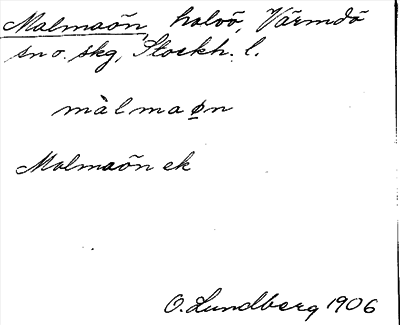 Malmaön, halvö, Värmdö
sn o. skg, Stockh. l.
màlmaøn
Malmaön ek
O. Lundberg 1906